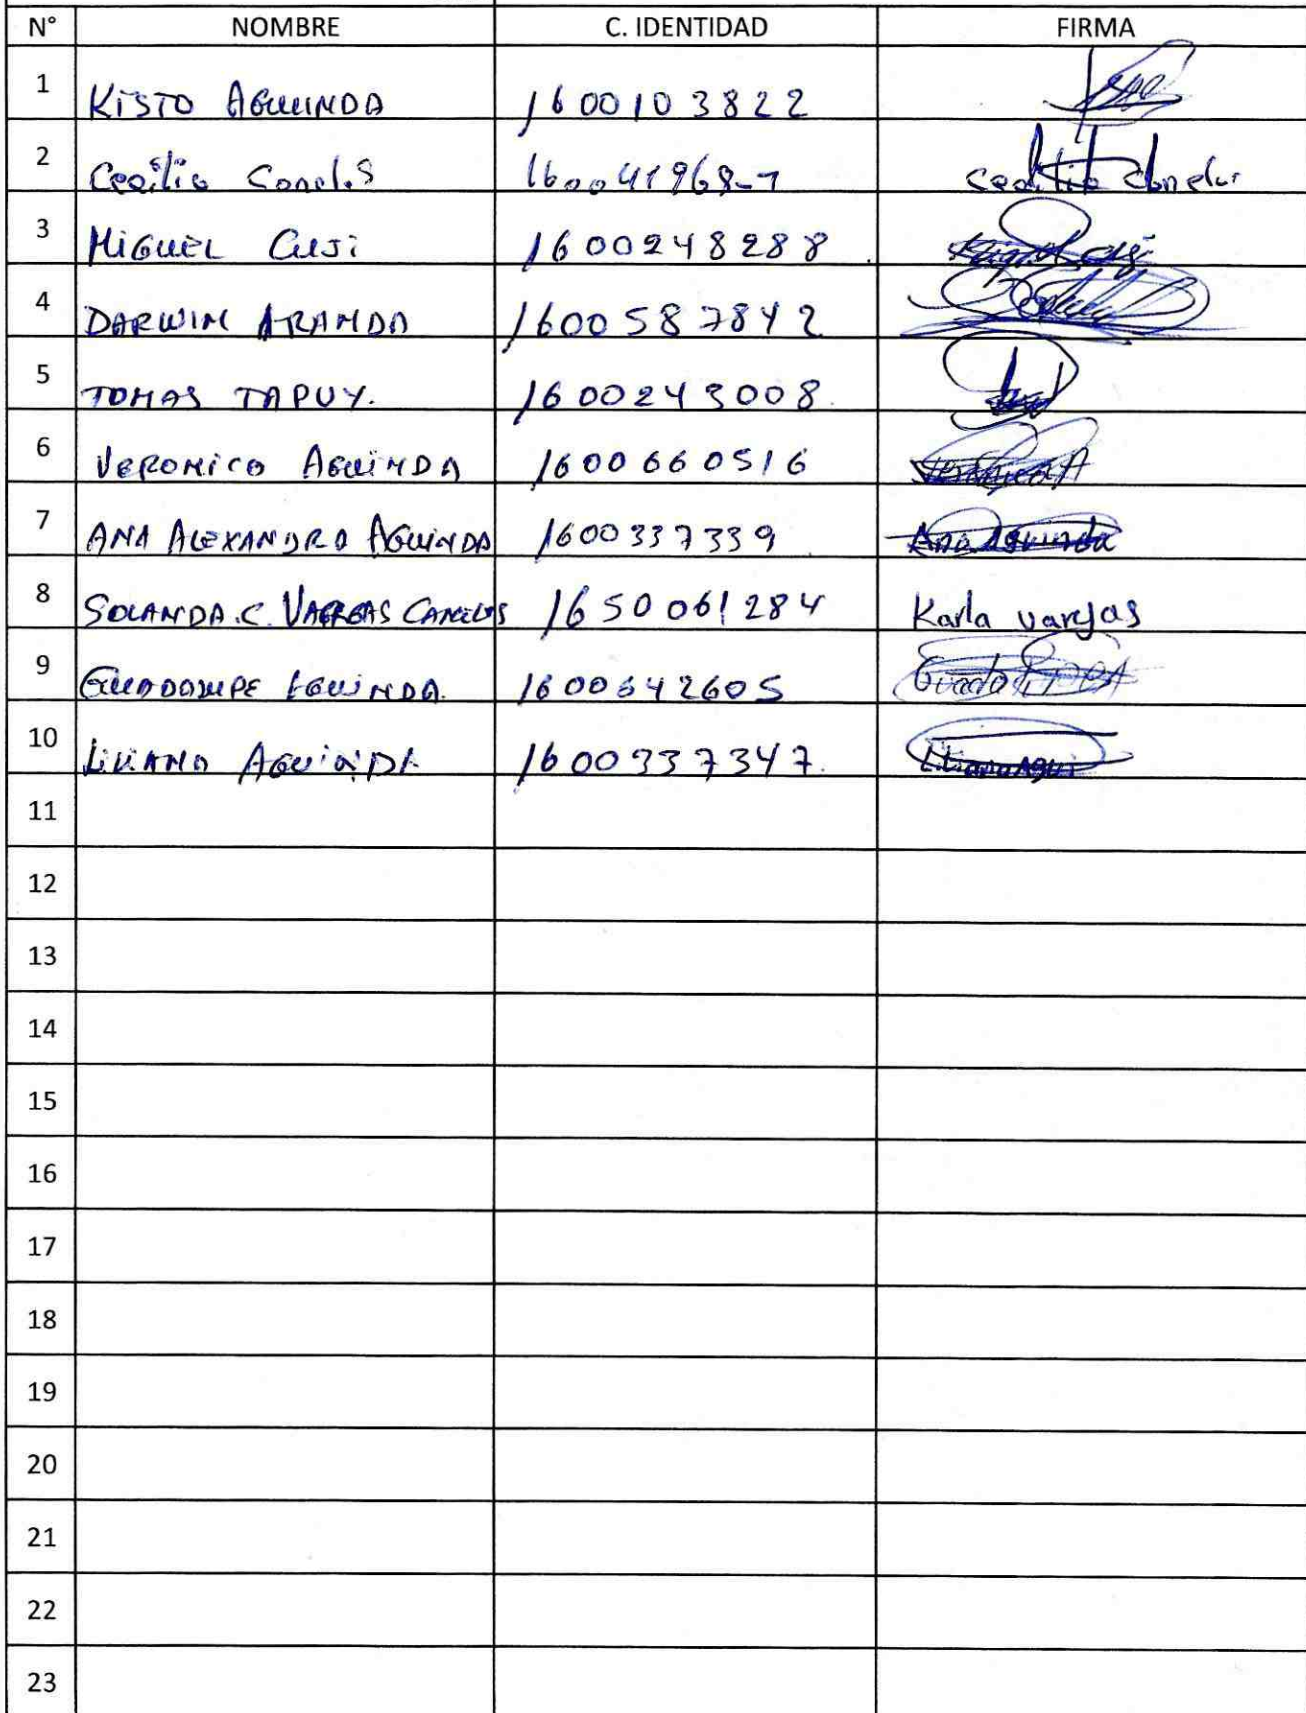 N° NOMBRE C. IDENTIDAD FIRMA
1 KISTO AGUINDA 1600103822
2 Cecilia 160041968-7
3 MIGUEL CUJI 1600248288
4 DARWIN ARANDA 1600587842
5 TOMAS TAPUY. 1600243008
6 VERONICA AGUINDA 1600660516
7 ANA ALEXANDRA AGUINDA 1600337339 Ana Aguinda
8 SOLANDA.C. VARGAS CANELOS 1650061284 Karla vargas
9 GUADALUPE AGUINDA. 1600642605
10 LILIANA AGUINDA 1600337347.
11
12
13
14
15
16
17
18
19
20
21
22
23